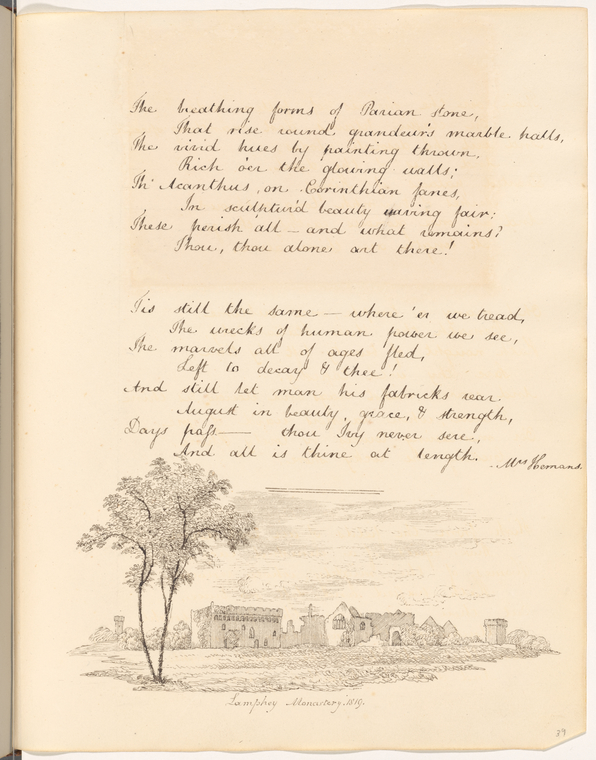 The breathing forms of Parian stone,
That rise round grandeur's marble halls,
The vivid hues by painting thrown,
Rich o'er the glowing walls;
Th' Acanthus, on Corinthian fanes,
In sculptur'd beauty waving fair:
These perish all — and what remains?
Thou, thou alone art there!
Tis still the same — where 'er we tread,
The wrecks of human power we see,
The marvels all of ages fled,
Left to decay & thee!
And still let man his fabricks rear
August in beauty, grace, & strength,
Days pass — thou Ivy never sere,
And all is thine at length.
Mrs Hemans.
Lamphey Monastery. 1819.
39